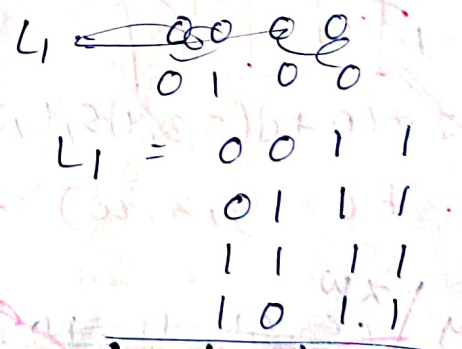 L1 = 0 0 0 0
0 1 0 0
L1 = 0 0 1 1
0 1 1 1
1 1 1 1
1 0 1 1